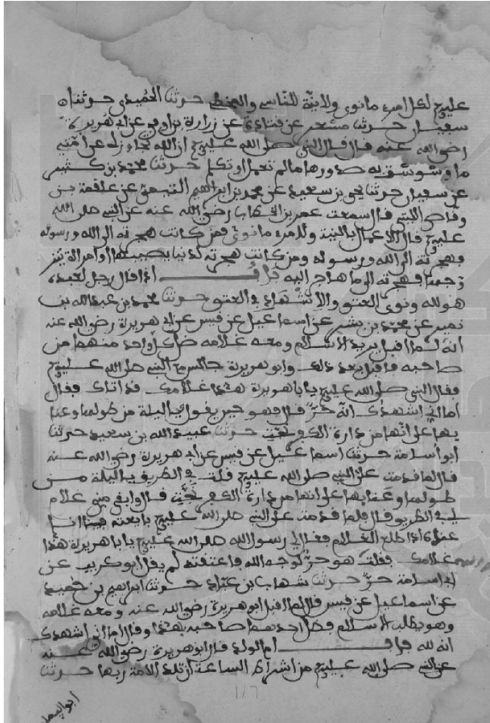 عليه لكل امرء ما نوى ولا نية للناسي والمخطئ حدثنا الحميدي حدثنا
سفيان حدثنا مسعر عن قتادة عن زرارة بن اوفى عن ابي هريرة
رضي الله عنه قال قال النبي صلى الله عليه ان الله تجاوز لي عن امتي
ما وسوست به صدورها ما لم تعمل او تكلم حدثنا محمد بن كثير
عن سفيان حدثنا يحيى بن سعيد عن محمد بن ابراهيم التيمي عن علقمة بن
وقاص الليثي قال سمعت عمر بن الخطاب رضي الله عنه عن النبي صلى الله
عليه قال الاعمال بالنية ولامرء ما نوى فمن كانت هجرته الى الله ورسوله
فهجرته الى الله ورسوله ومن كانت هجرته لدنيا يصيبها او امراة يتز
وجها فهجرته الى ما هاجر اليه باب اذا قال رجل لعبده
هو لله ونوى العتق والاشهاد في العتق حدثنا محمد بن عبد الله بن
نمير عن محمد بن بشر عن اسماعيل عن قيس عن ابي هريرة رضي الله عنه
انه لما اقبل يريد الاسلام ومعه غلامه ضل كل واحد منهما من
صاحبه فاقبل بعد ذلك وابو هريرة جالس مع النبي صلى الله عليه
فقال النبي صلى الله عليه يابا هريرة هذا غلامك قد اتاك فقال
اما اني اشهدك انه حر قال فهو حين يقول يا ليلة من طولها وعنا
يها على انها من دارة الكفر نجت حدثنا عبيد الله بن سعيد حدثنا
ابو اسامة حدثنا اسماعيل عن قيس عن ابي هريرة رضي الله عنه
قال لما قدمت على النبي صلى الله عليه قلت في الطريق يا ليلة من
طولها وعنايها على انها من دارة الكفر نجت قال وابق مني غلام
لي في الطريق قال فلما قدمت على النبي صلى الله عليه بايعته فبينا انا
عنده اذ طلع الغلام فقال لي رسول الله صلى الله عليه يابا هريرة هذا
غلامك فقلت هو حر لوجه الله فاعتقته لم يقل ابو كريب عن
ابي اسامة حر حدثنا شهاب بن عباد حدثنا ابراهيم بن حميد
عن اسماعيل عن قيس قال لما اقبل ابو هريرة رضي الله عنه ومعه غلامه
وهو يطلب الاسلام فضل احدهما صاحبه بهذا وقال اما اني اشهدك
انه لله باب ام الولد قال ابو هريرة رضي الله عنه
عن النبي صلى الله عليه من اشراط الساعة ان تلد الامة ربها حدثنا